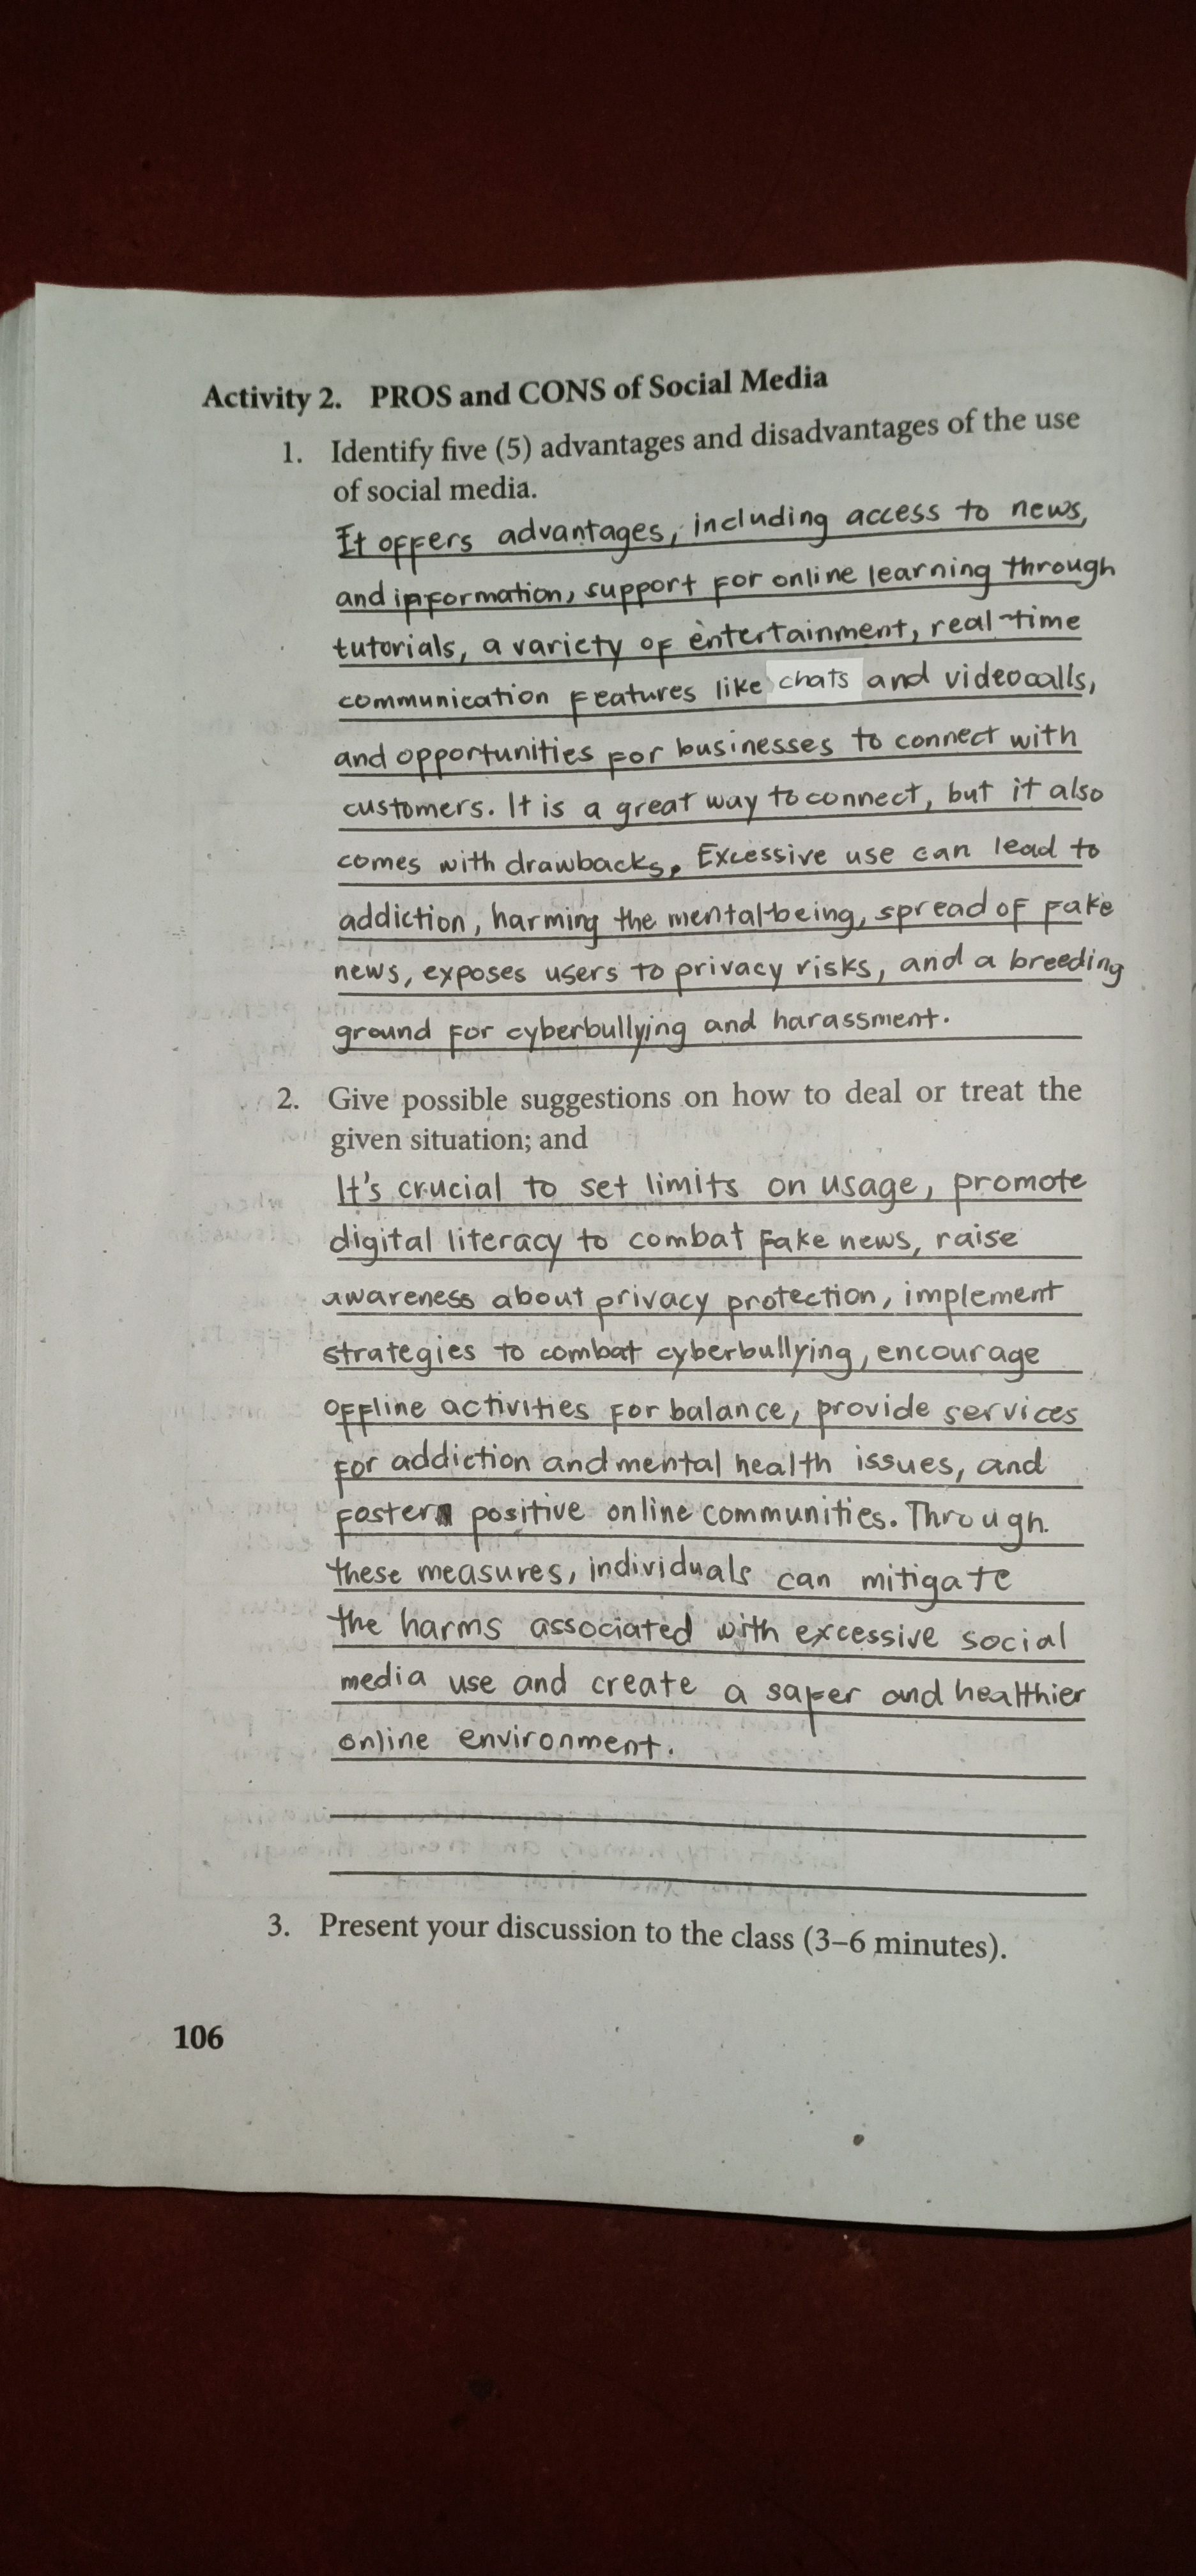 Activity 2. PROS and CONS of Social Media
1. Identify five (5) advantages and disadvantages of the use
of social media.
It offers advantages, including access to news,
and information, support for online learning through
tutorials, a variety of entertainment, real-time
communication features like chats and videocalls,
and opportunities for businesses to connect with
customers. It is a great way to connect, but it also
comes with drawbacks. Excessive use can lead to
addiction, harming the mental-being, spread of fake
news, exposes users to privacy risks, and a breeding
ground for cyberbullying and harassment.
2. Give possible suggestions on how to deal or treat the
given situation; and
It's crucial to set limits on usage, promote
digital literacy to combat fake news, raise
awareness about privacy protection, implement
strategies to combat cyberbullying, encourage
offline activities for balance, provide services
for addiction and mental health issues, and
foster positive online communities. Through
these measures, individuals can mitigate
the harms associated with excessive social
media use and create a safer and healthier
online environment.
3. Present your discussion to the class (3–6 minutes).
106